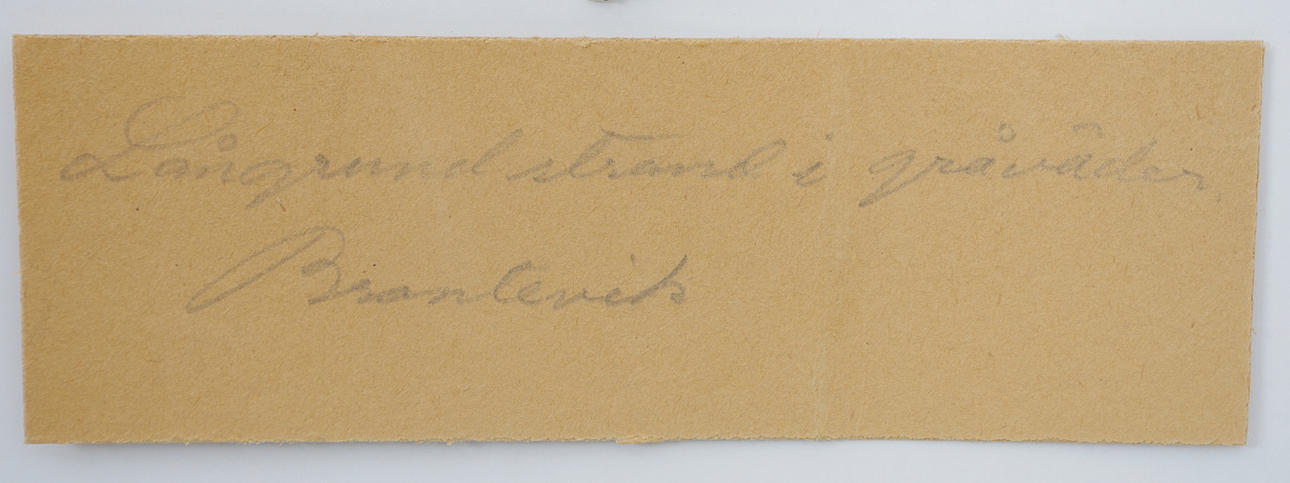 Långrund strand i gråväder
Brantevik